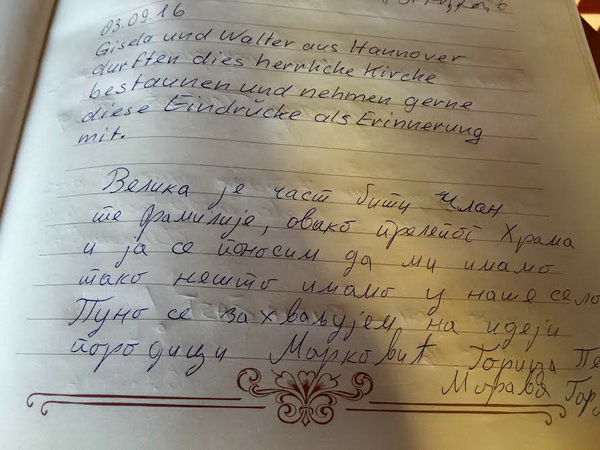 03.09.16
Gisela und Walter aus Hannover
durften dies herrliche Kirche
bestaunen und nehmen gerne
diese Eindrücke als Erinnerung
mit.
Велика је част бити члан
те фамилије, овако прелепог Храма
и ја се поносим да ми имамо
тако нешто имамо у наше село
Пуно се захваљујем на идеји
породици Марковић Горица
Морава